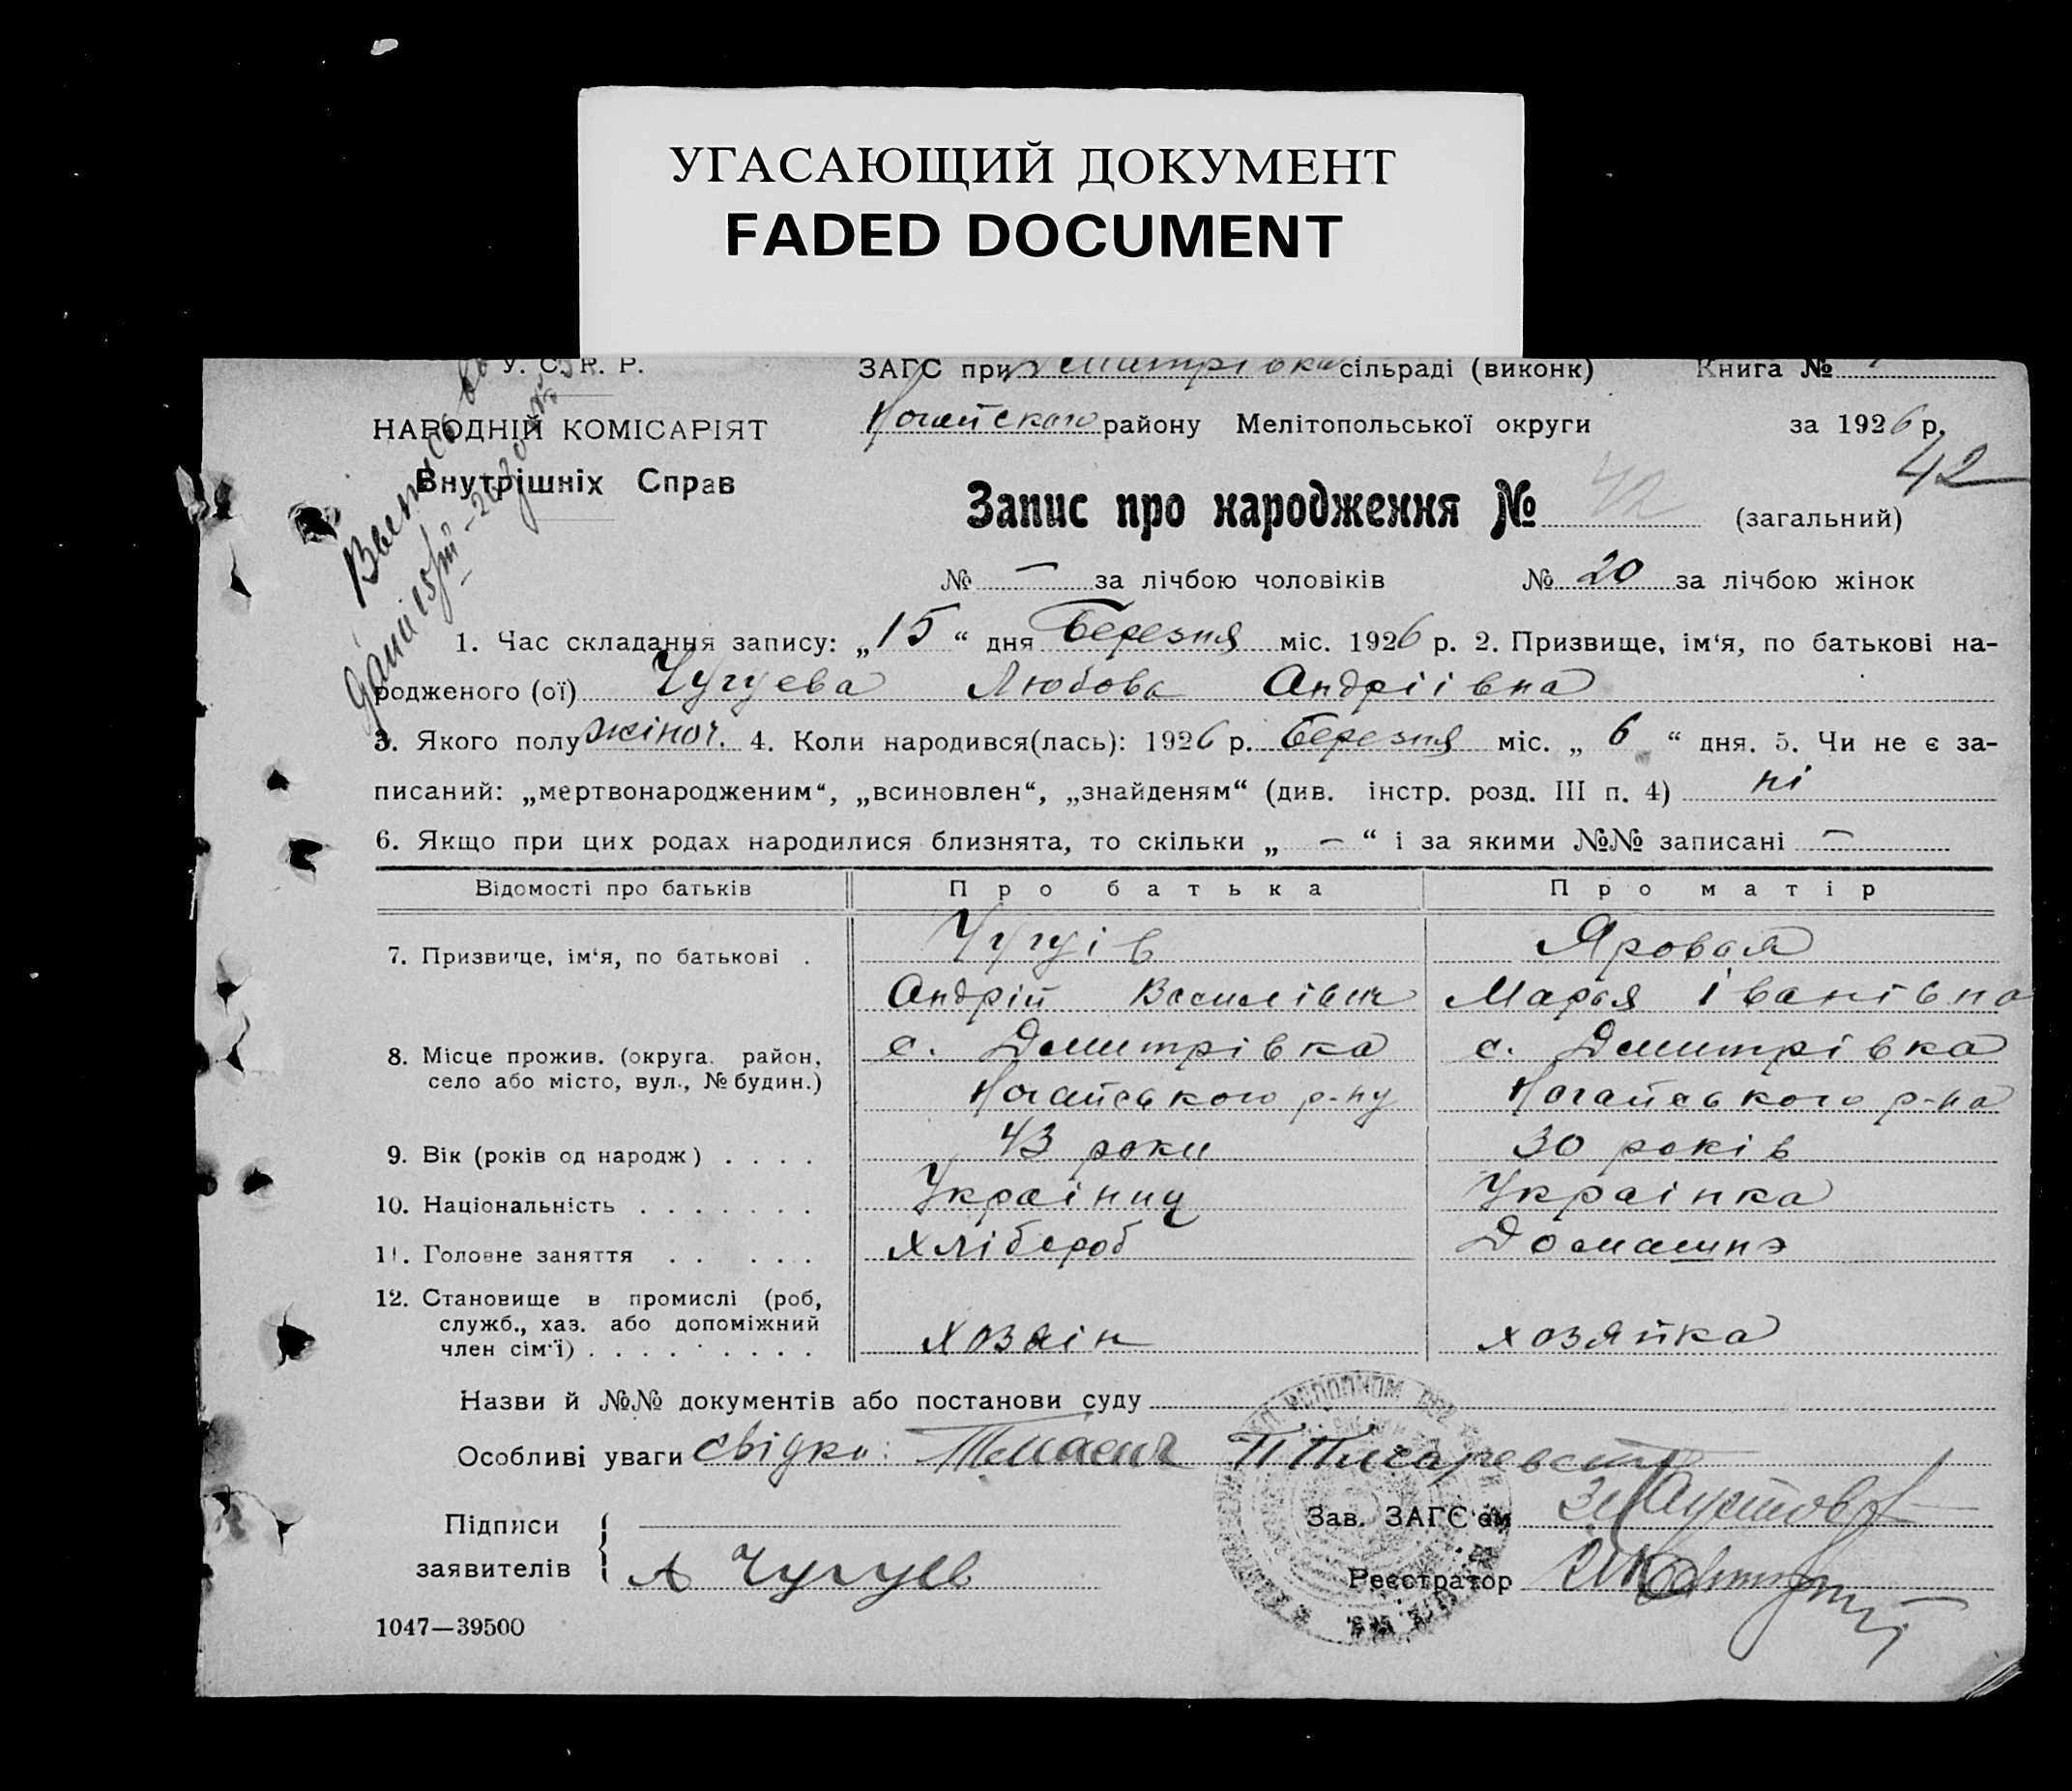 УГАСАЮЩИЙ ДОКУМЕНТ
FADED DOCUMENT
У. С. Р. Р.
ЗАГС при Дмитрівка сільраді (виконк) Книга №
НАРОДНІЙ КОМІСАРІЯТ
Внутрішніх Справ
Ногайского району Мелітопольської округи за 1926 р.
42
Запис про народження № 42 (загальний)
№ — за лічбою чоловіків № 20 за лічбою жінок
1. Час складання запису: „15“ дня Березня міс. 1926 р. 2. Призвище, ім‘я, по батькові на-
родженого (ої) Чугуева Любовь Андріівна
3. Якого полу жіноч. 4. Коли народився(лась): 1926 р. Березня міс. „6“ дня. 5. Чи не є за-
писаний: „мертвонародженим“, „всиновлен“, „знайденям“ (див. інстр. розд. III п. 4) ні
6. Якщо при цих родах народилися близнята, то скільки „—“ і за якими №№ записані —
Відомості про батьків Про батька Про матір
7. Призвище, ім‘я, по батькові . Чугуів Яровая
Андрій Василівич Марья Іванівна
8. Місце прожив. (округа. район, с. Дмитрівка с. Дмитрівка
село або місто, вул., № будин.) Ногайського р-ну Ногайського р-на
9. Вік (років од народж) . . . . 43 роки 30 років
10. Національність . . . . . . . Украіниц Украінка
11. Головне заняття . . . . . Хлібороб Домашнэ
12. Становище в промислі (роб,
служб., хаз. або допоміжний
член сім‘ї) . . . . . . . . . хозяін хозяйка
Назви й №№ документів або постанови суду
Особливі уваги свідки:
Підписи
заявителів А Чугуев
Зав. ЗАГС‘ом
Реєстратор
1047—39500